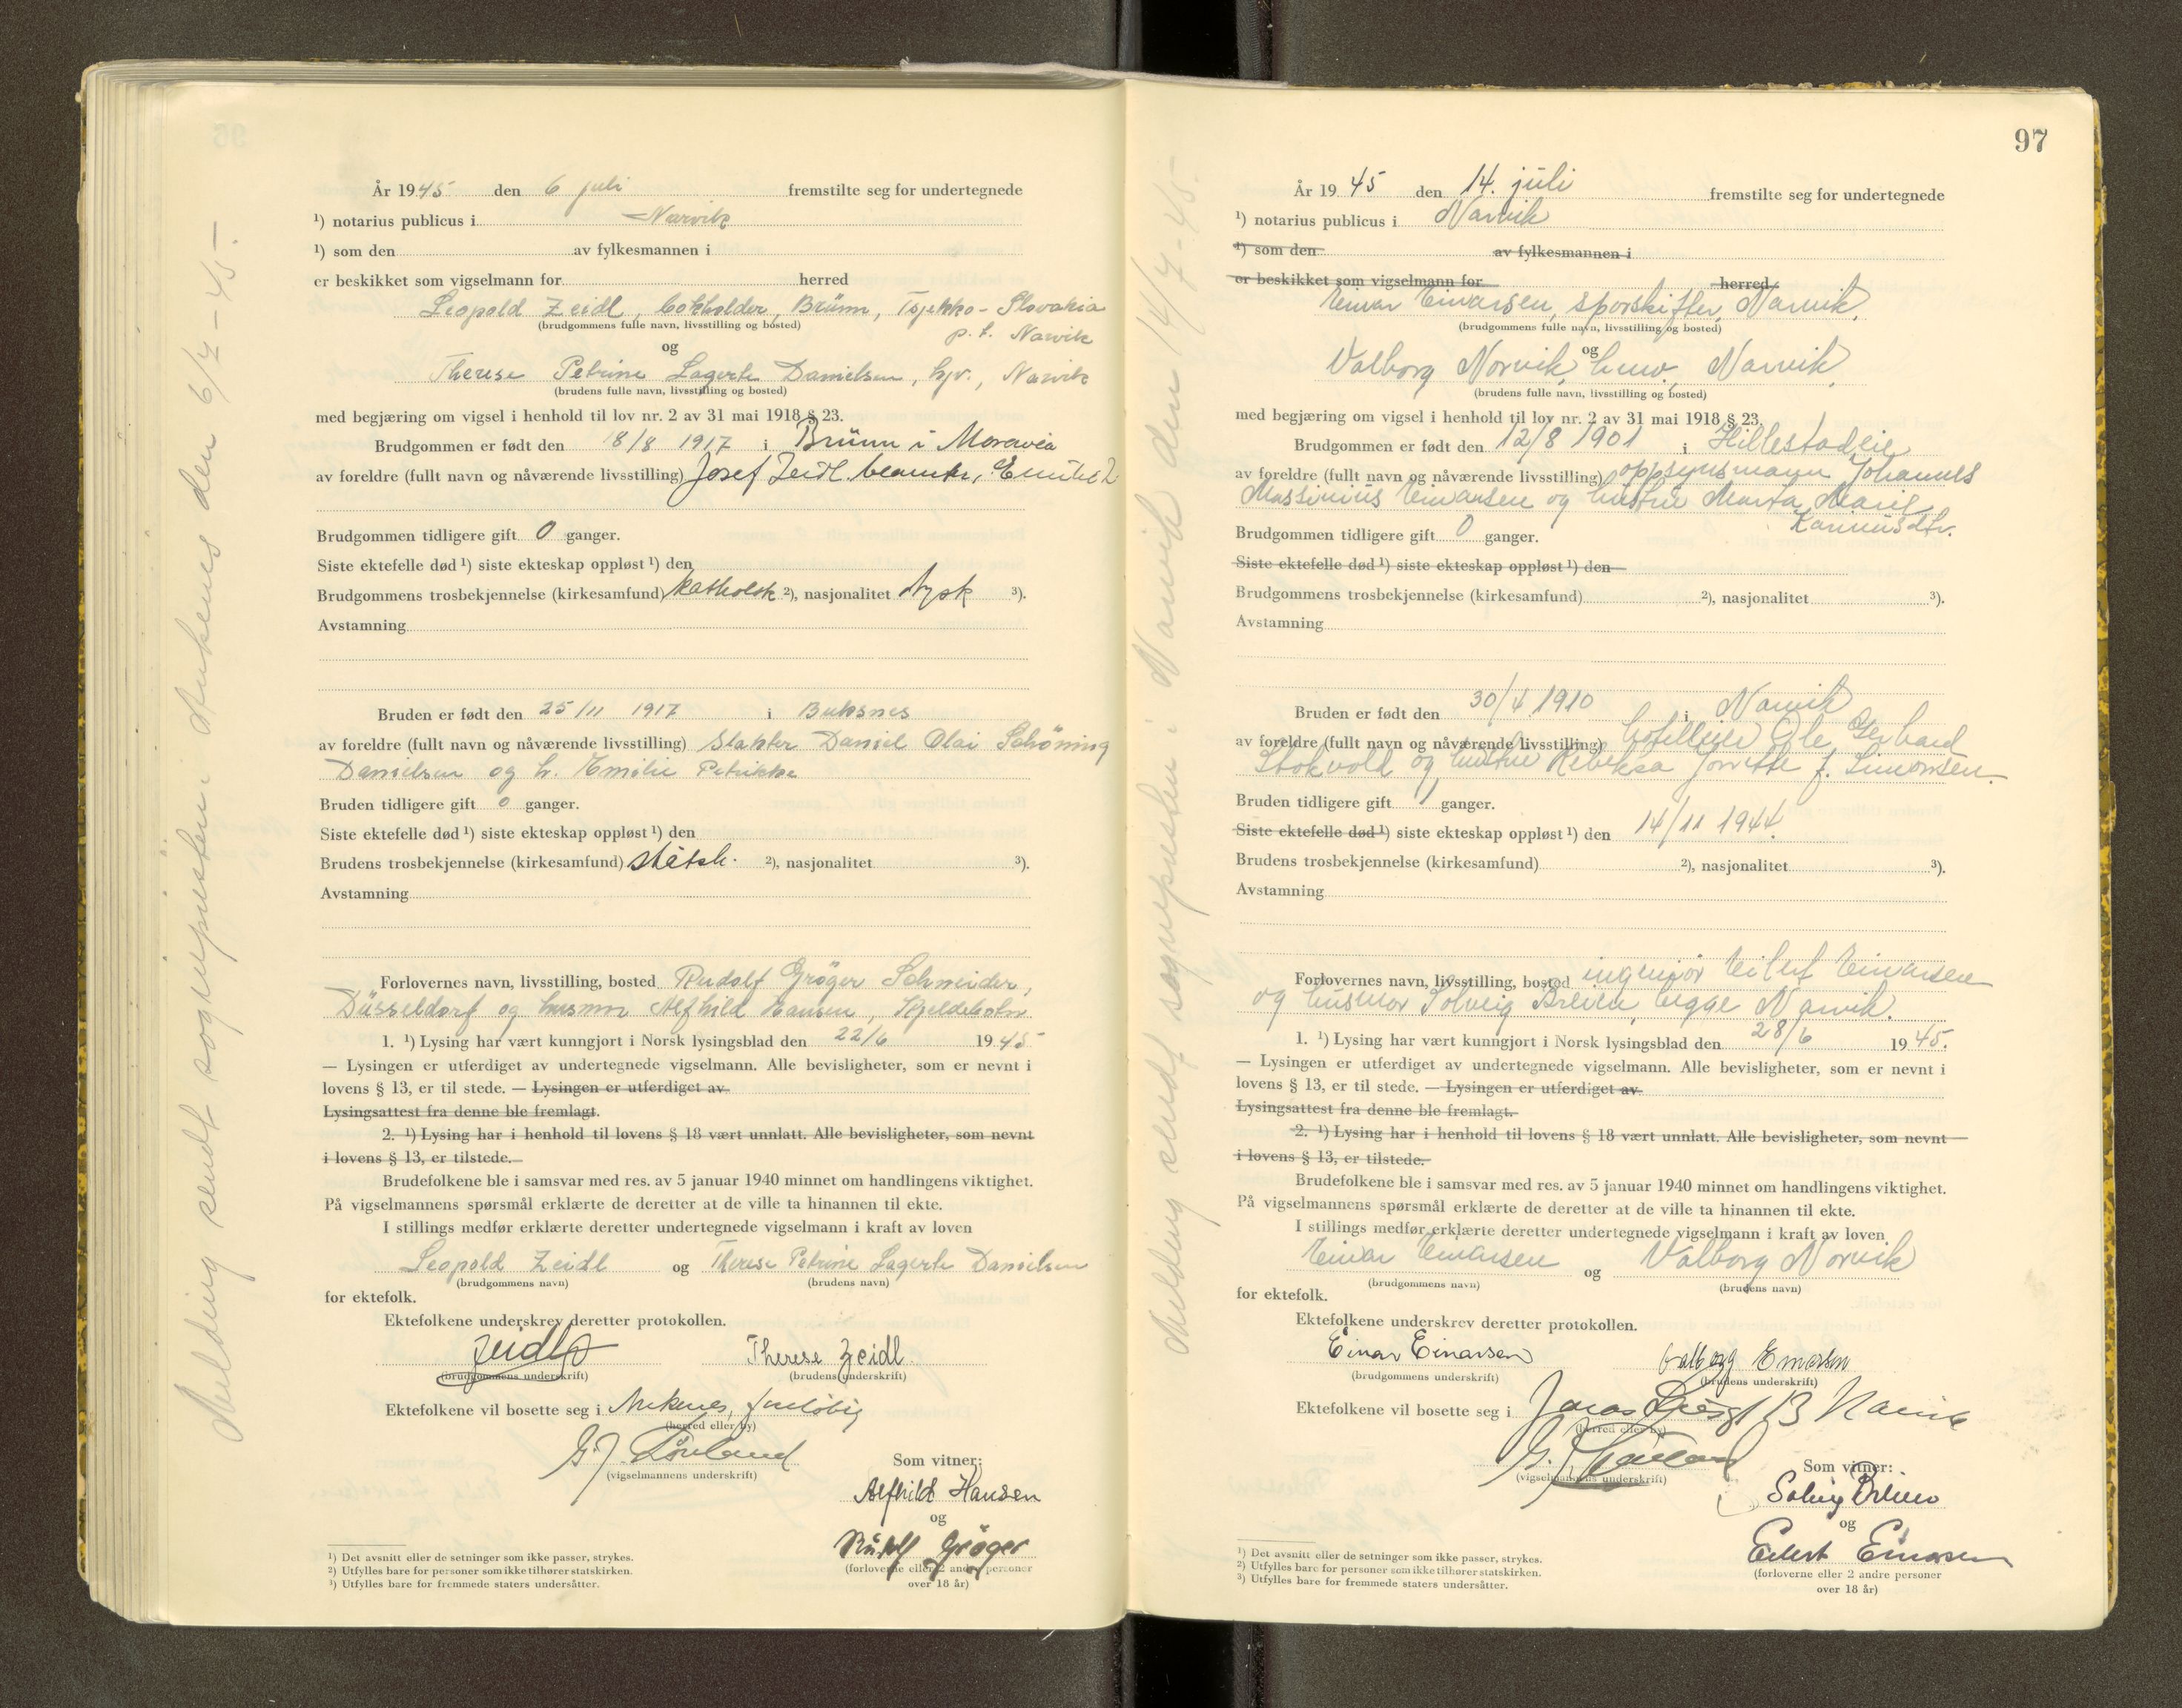 År 1945 den 6 juli fremstilte seg for undertegnede
¹) notarius publicus i Narvik
¹) som den av fylkesmannen i
er beskikket som vigselmann for herred
Leopold Zeidl, bokholder, Brünn, Tsjekko-Slovakia
(brudgommens fulle navn, livsstilling og bosted)
p. t. Narvik
og
Therese Petrine Lagerta Danielsen, hjv., Narvik
(brudens fulle navn, livsstilling og bosted)
med begjæring om vigsel i henhold til lov nr. 2 av 31 mai 1918 § 23.
Brudgommen er født den 8/8 1917 i Brünn i Moravia
av foreldre (fullt navn og nåværende livsstilling) Josef Zeidl. beamter, Emilie Z
Brudgommen tidligere gift 0 ganger.
Siste ektefelle død ¹) siste ekteskap oppløst ¹) den
Brudgommens trosbekjennelse (kirkesamfund) katholsk ²), nasjonalitet tysk ³).
Avstamning
Bruden er født den 25/11 1917 i Buksnes
av foreldre (fullt navn og nåværende livsstilling) slakter Daniel Olai Schöning
Danielsen og h. Emilie Petrikke
Bruden tidligere gift 0 ganger.
Siste ektefelle død ¹) siste ekteskap oppløst ¹) den
Brudens trosbekjennelse (kirkesamfund) statsk. ²), nasjonalitet ³).
Avstamning
Forlovernes navn, livsstilling, bosted Rudolf Gröger Schneider,
Düsseldorf og husmor Alfhild Hansen, Kjeldebotn
1. ¹) Lysing har vært kunngjort i Norsk lysingsblad den 22/6 1945
— Lysingen er utferdiget av undertegnede vigselmann. Alle bevisligheter, som er nevnt i
lovens § 13, er til stede. — Lysingen er utferdiget av
Lysingsattest fra denne ble fremlagt.
2. ¹) Lysing har i henhold til lovens § 18 vært unnlatt. Alle bevisligheter, som nevnt
i lovens § 13, er tilstede.
Brudefolkene ble i samsvar med res. av 5 januar 1940 minnet om handlingens viktighet.
På vigselmannens spørsmål erklærte de deretter at de ville ta hinannen til ekte.
I stillings medfør erklærte deretter undertegnede vigselmann i kraft av loven
Leopold Zeidl og Therese Petrine Lagerta Danielsen
(brudgommens navn) (brudens navn)
for ektefolk.
Ektefolkene underskrev deretter protokollen.
Zeidl Therese Zeidl
(brudgommens underskrift) (brudens underskrift)
Ektefolkene vil bosette seg i Ankenes, foreløbig
(herred eller by)
(vigselmannens underskrift)
Som vitner:
Alfhild Hansen
og
Rudolf Gröger
(forloverne eller 2 andre personer
over 18 år)
¹) Det avsnitt eller de setninger som ikke passer, strykes.
²) Utfylles bare for personer som ikke tilhører statskirken.
³) Utfylles bare for fremmede staters undersåtter.
Melding sendt sognepresten i Ankenes den 6/7-45-
97
År 1945 den 14. juli fremstilte seg for undertegnede
¹) notarius publicus i Narvik
¹) som den av fylkesmannen i
er beskikket som vigselmann for herred
Einar Einarsen, sporskifter, Narvik.
(brudgommens fulle navn, livsstilling og bosted)
og
Valborg Norvik, hmv. Narvik.
(brudens fulle navn, livsstilling og bosted)
med begjæring om vigsel i henhold til lov nr. 2 av 31 mai 1918 § 23.
Brudgommen er født den 12/8 1901 i Hillestadeie
av foreldre (fullt navn og nåværende livsstilling) oppsynsmann Johannes
Massinius Einarsen og hustru Marta Marie
Rasmusdtr.
Brudgommen tidligere gift 0 ganger.
Siste ektefelle død ¹) siste ekteskap oppløst ¹) den
Brudgommens trosbekjennelse (kirkesamfund) ²), nasjonalitet ³).
Avstamning
Bruden er født den 30/4 1910 i Narvik
av foreldre (fullt navn og nåværende livsstilling) hotelleier Ole Gerhard
Stokvold og hustru Rebekka Jonette f. Simonsen.
Bruden tidligere gift 1 ganger.
Siste ektefelle død ¹) siste ekteskap oppløst ¹) den 14/11 1944.
Brudens trosbekjennelse (kirkesamfund) ²), nasjonalitet ³).
Avstamning
Forlovernes navn, livsstilling, bosted ingeniør Eilert Einarsen
og husmor Solveig Breivu, begge Narvik.
1. ¹) Lysing har vært kunngjort i Norsk lysingsblad den 28/6 1945.
— Lysingen er utferdiget av undertegnede vigselmann. Alle bevisligheter, som er nevnt i
lovens § 13, er til stede. — Lysingen er utferdiget av
Lysingsattest fra denne ble fremlagt.
2. ¹) Lysing har i henhold til lovens § 18 vært unnlatt. Alle bevisligheter, som nevnt
i lovens § 13, er tilstede.
Brudefolkene ble i samsvar med res. av 5 januar 1940 minnet om handlingens viktighet.
På vigselmannens spørsmål erklærte de deretter at de ville ta hinannen til ekte.
I stillings medfør erklærte deretter undertegnede vigselmann i kraft av loven
Einar Einarsen og Valborg Norvik
(brudgommens navn) (brudens navn)
for ektefolk.
Ektefolkene underskrev deretter protokollen.
Einar Einarsen Valborg Einarsen
(brudgommens underskrift) (brudens underskrift)
Ektefolkene vil bosette seg i Jonas Liesgt 13 Narvik
(herred eller by)
(vigselmannens underskrift)
Som vitner:
Solveig
og
Eilert Einarsen
(forloverne eller 2 andre personer
over 18 år)
¹) Det avsnitt eller de setninger som ikke passer, strykes.
²) Utfylles bare for personer som ikke tilhører statskirken.
³) Utfylles bare for fremmede staters undersåtter.
Melding sendt sognepresten i Narvik den 14/7-45-